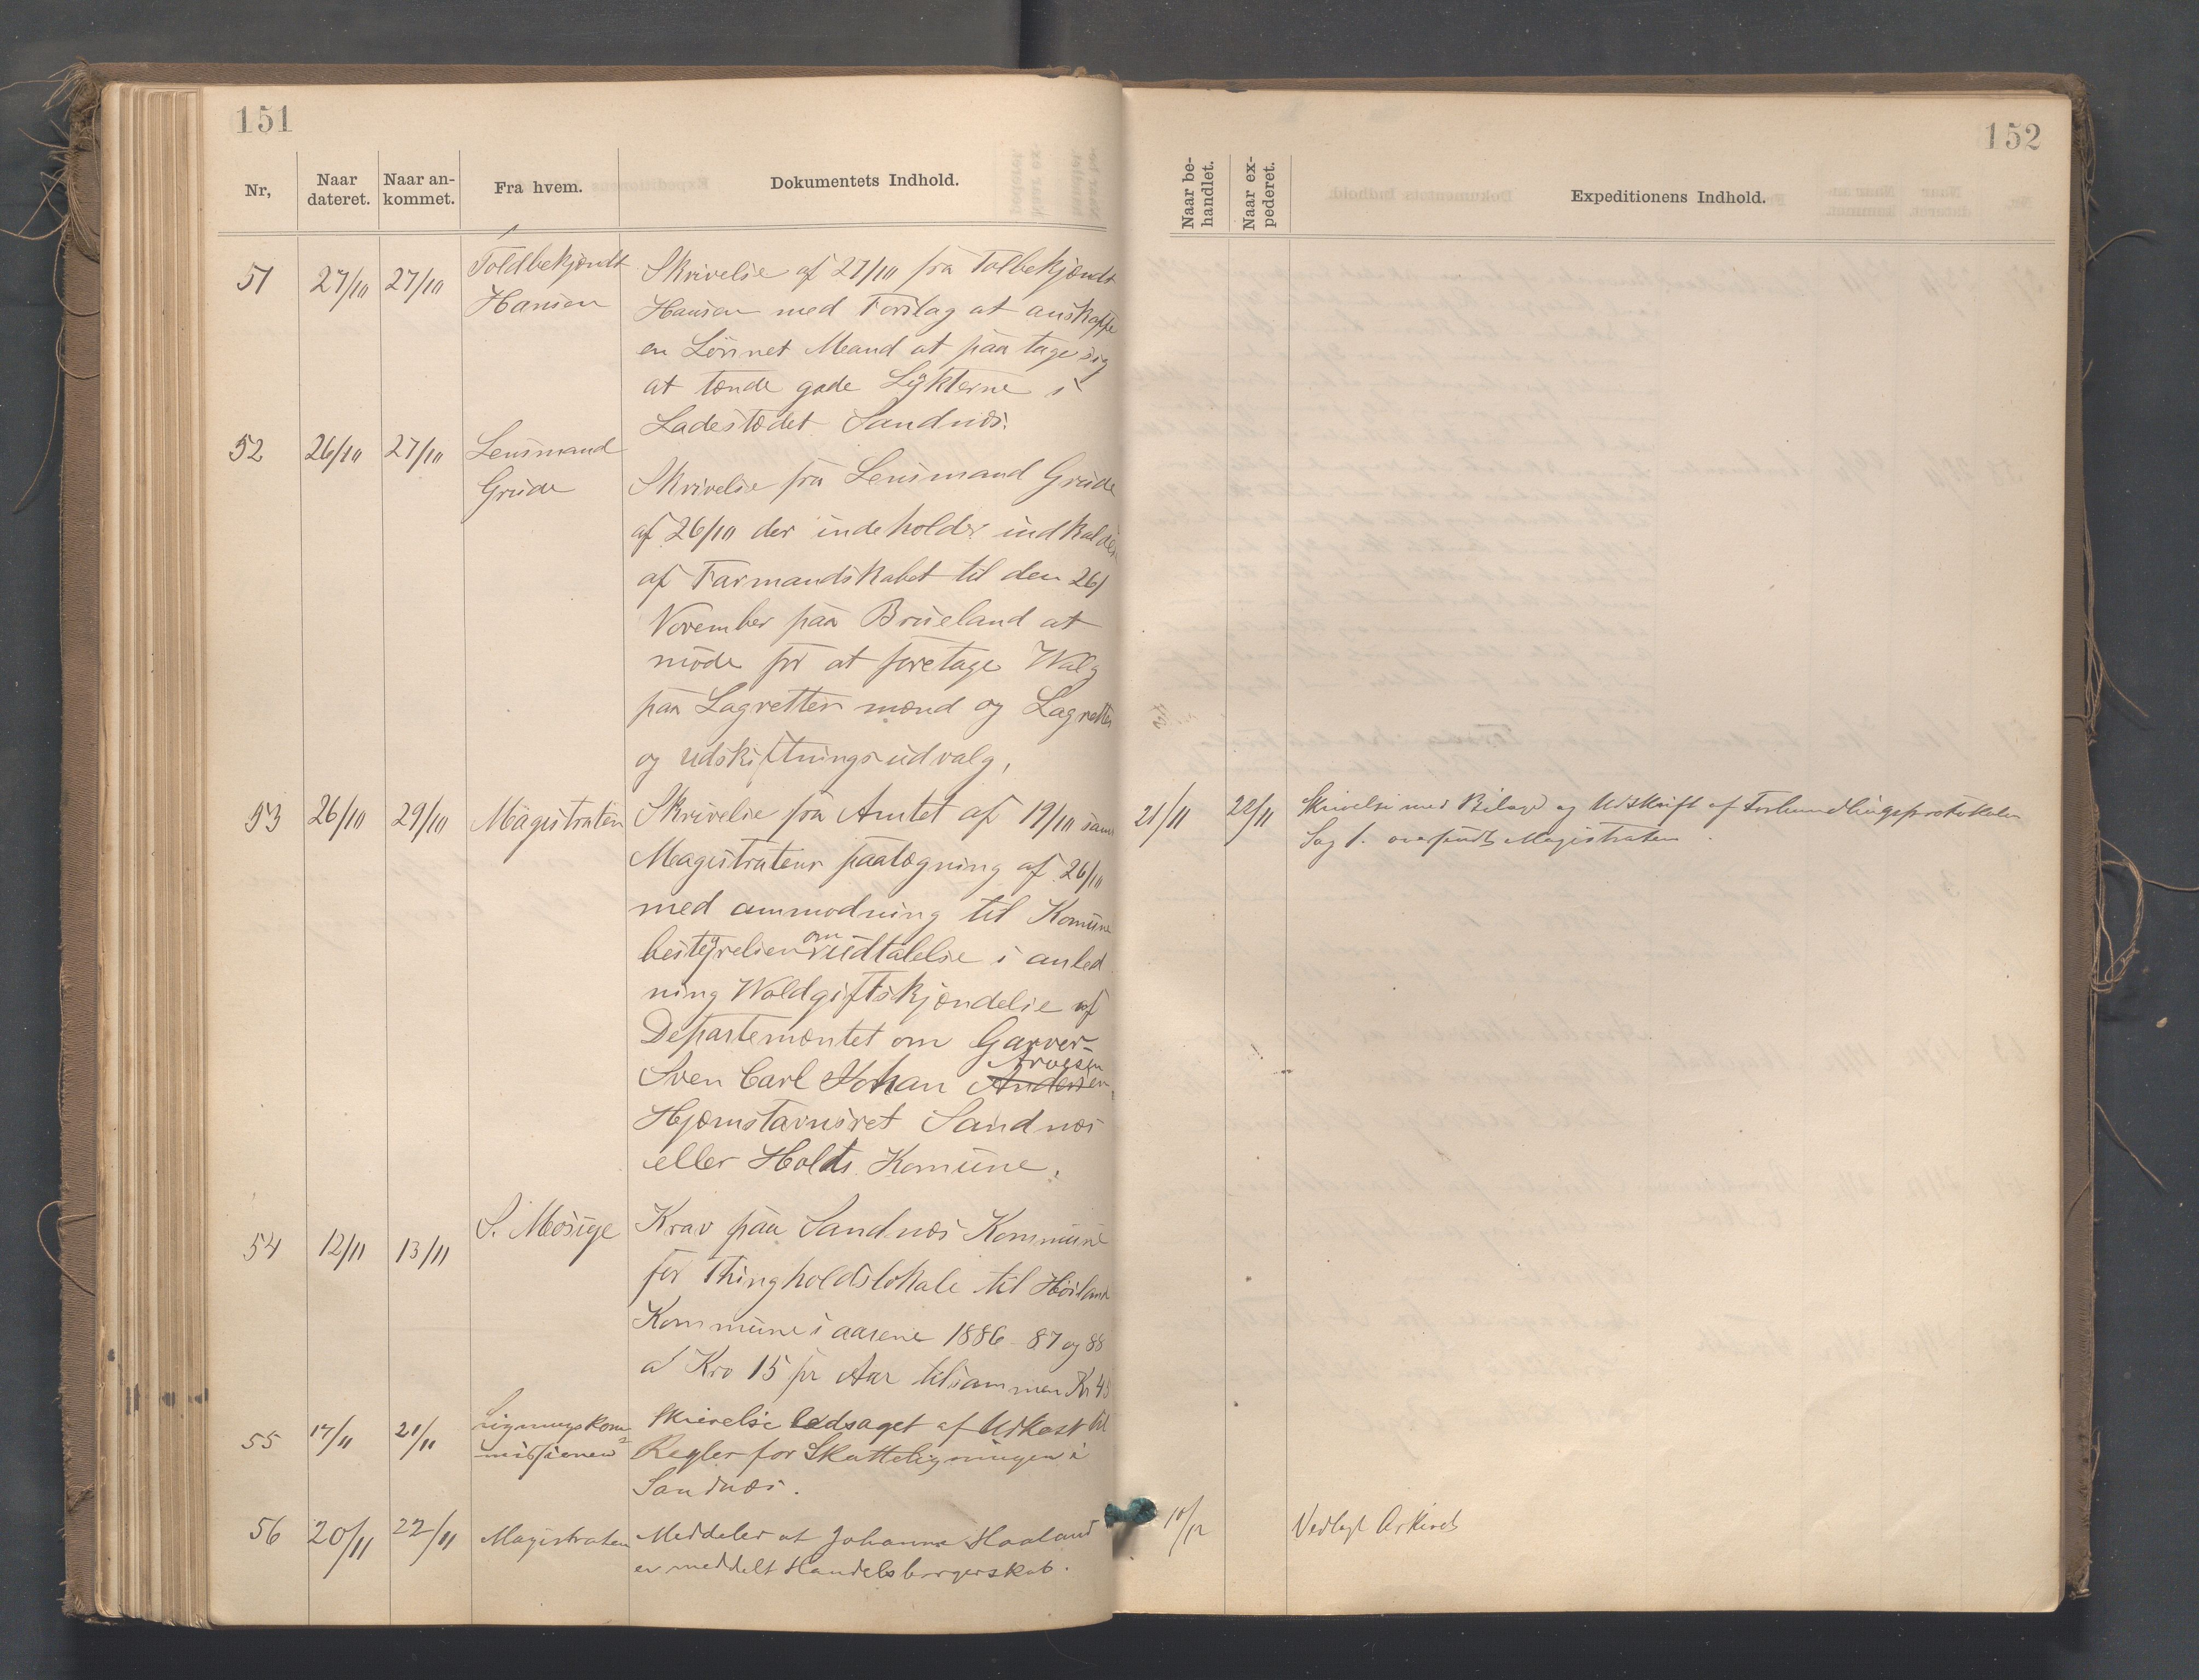 151
Nr, Naar dateret. Naar an-kommet. Fra hvem. Dokumentets Indhold.
51 27/10 27/10 Toldbekjendt
Hansen
Skrivelse af 27/10 fra Tolbekjendt
Hansen med Forslag at anskaffe
en Lønnet Mand at paa tage sig
at tænde gade Lykterne i
Ladestædet Sandnæs.
52 26/10 27/10 Lensmand
Grude
Skrivelse fra Lensmand Grude
af 26/10 der indeholder
af Farmandskabet til den 26/
November paa Brueland at
møde for at foretage Walg
paa Lagrettes mænd og Lagrettes
og udskiftningsudvalg,
53 26/10 29/10 Magistraten
Skrivelse fra Amtet af 19/10 samt
Magistratens paategning af 26/10
med anmodning til Komune
bestyrelsen om udtalelse i anled
ning Woldgiftskjendelse af
Departementet om Garver-
Arvesen
Sven Carl Johan Andersen,
Hjemstavnsret Sandnæs
eller Holts Komune.
54 12/11 13/11 S. Mosige
Krav paa Sandnæs Kommune
for Thingholdslokale til Høiland
Kommune i aarene 1886-87 og 88
a Kro 15 pr Aar tilsammen Kr 45
55 17/11 21/11 Ligningskom=
missionen
Skrivelse ledsaget af Udkast til
Regler for Skatteligningen i
Sandnæs.
56 20/11 22/11 Magistraten
Meddeler at Johanne Haaland
er meddelt Handelsborgerskab.
152
Naar be-handlet. Naar ex-pederet. Expeditionens Indhold.
21/11 22/11 Skrivelse med Bilage og Udskrift af Forhandlingsprotokolen
Sag 1. oversendt Magistraten.
10/12 Vedlagt Arkivet